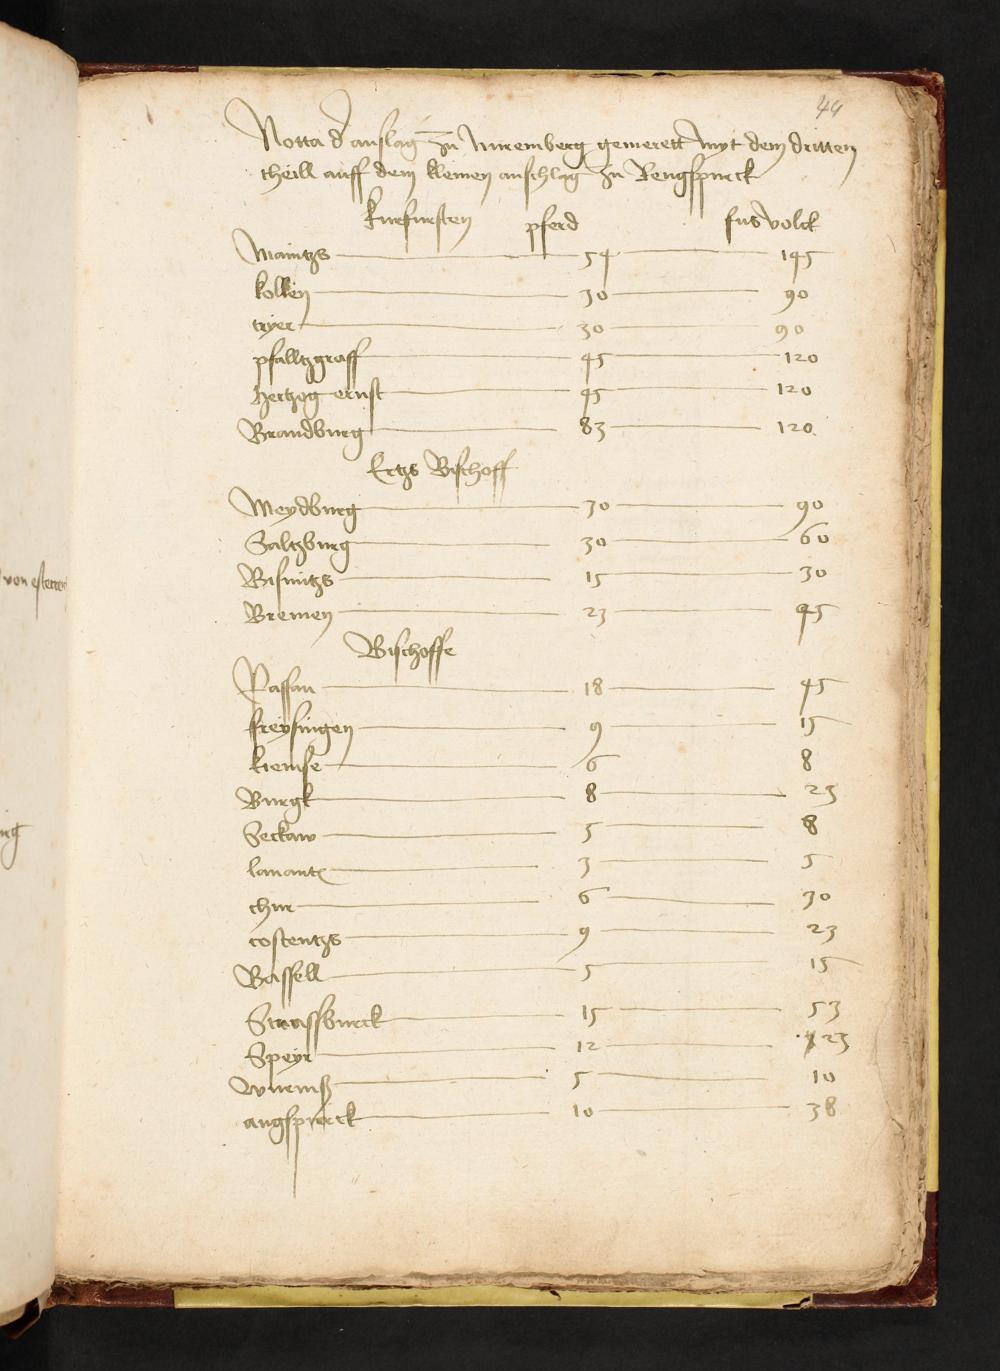 44
Notta d' anslag zu Nuremberg gemerett myt dem dritten
theill auff dem kleinen anschlag zu Rengspurck
kurfursten pferd fusvolck
Maintzs 54 145
kollen 30 90
tryer 30 90
pfalltzgraff 45 120
hertzog ernst 45 120
Brandburg 83 120
Ertzs Bischoff
Meydburg 30 90
Saltzburg 30 60
Bisnitzs 15 30
Bremen 23 45
Bischoffe
Passau 18 45
freysingen 9 15
kiemse 6 8
Burgk 8 23
Seckaw 5 8
lauant 3 5
chur 6 30
costentzs 9 23
Bassell 5 15
Strassburck 15 53
Speyr 12 23
Wurmß 5 10
augspurck 10 38
von esterreich